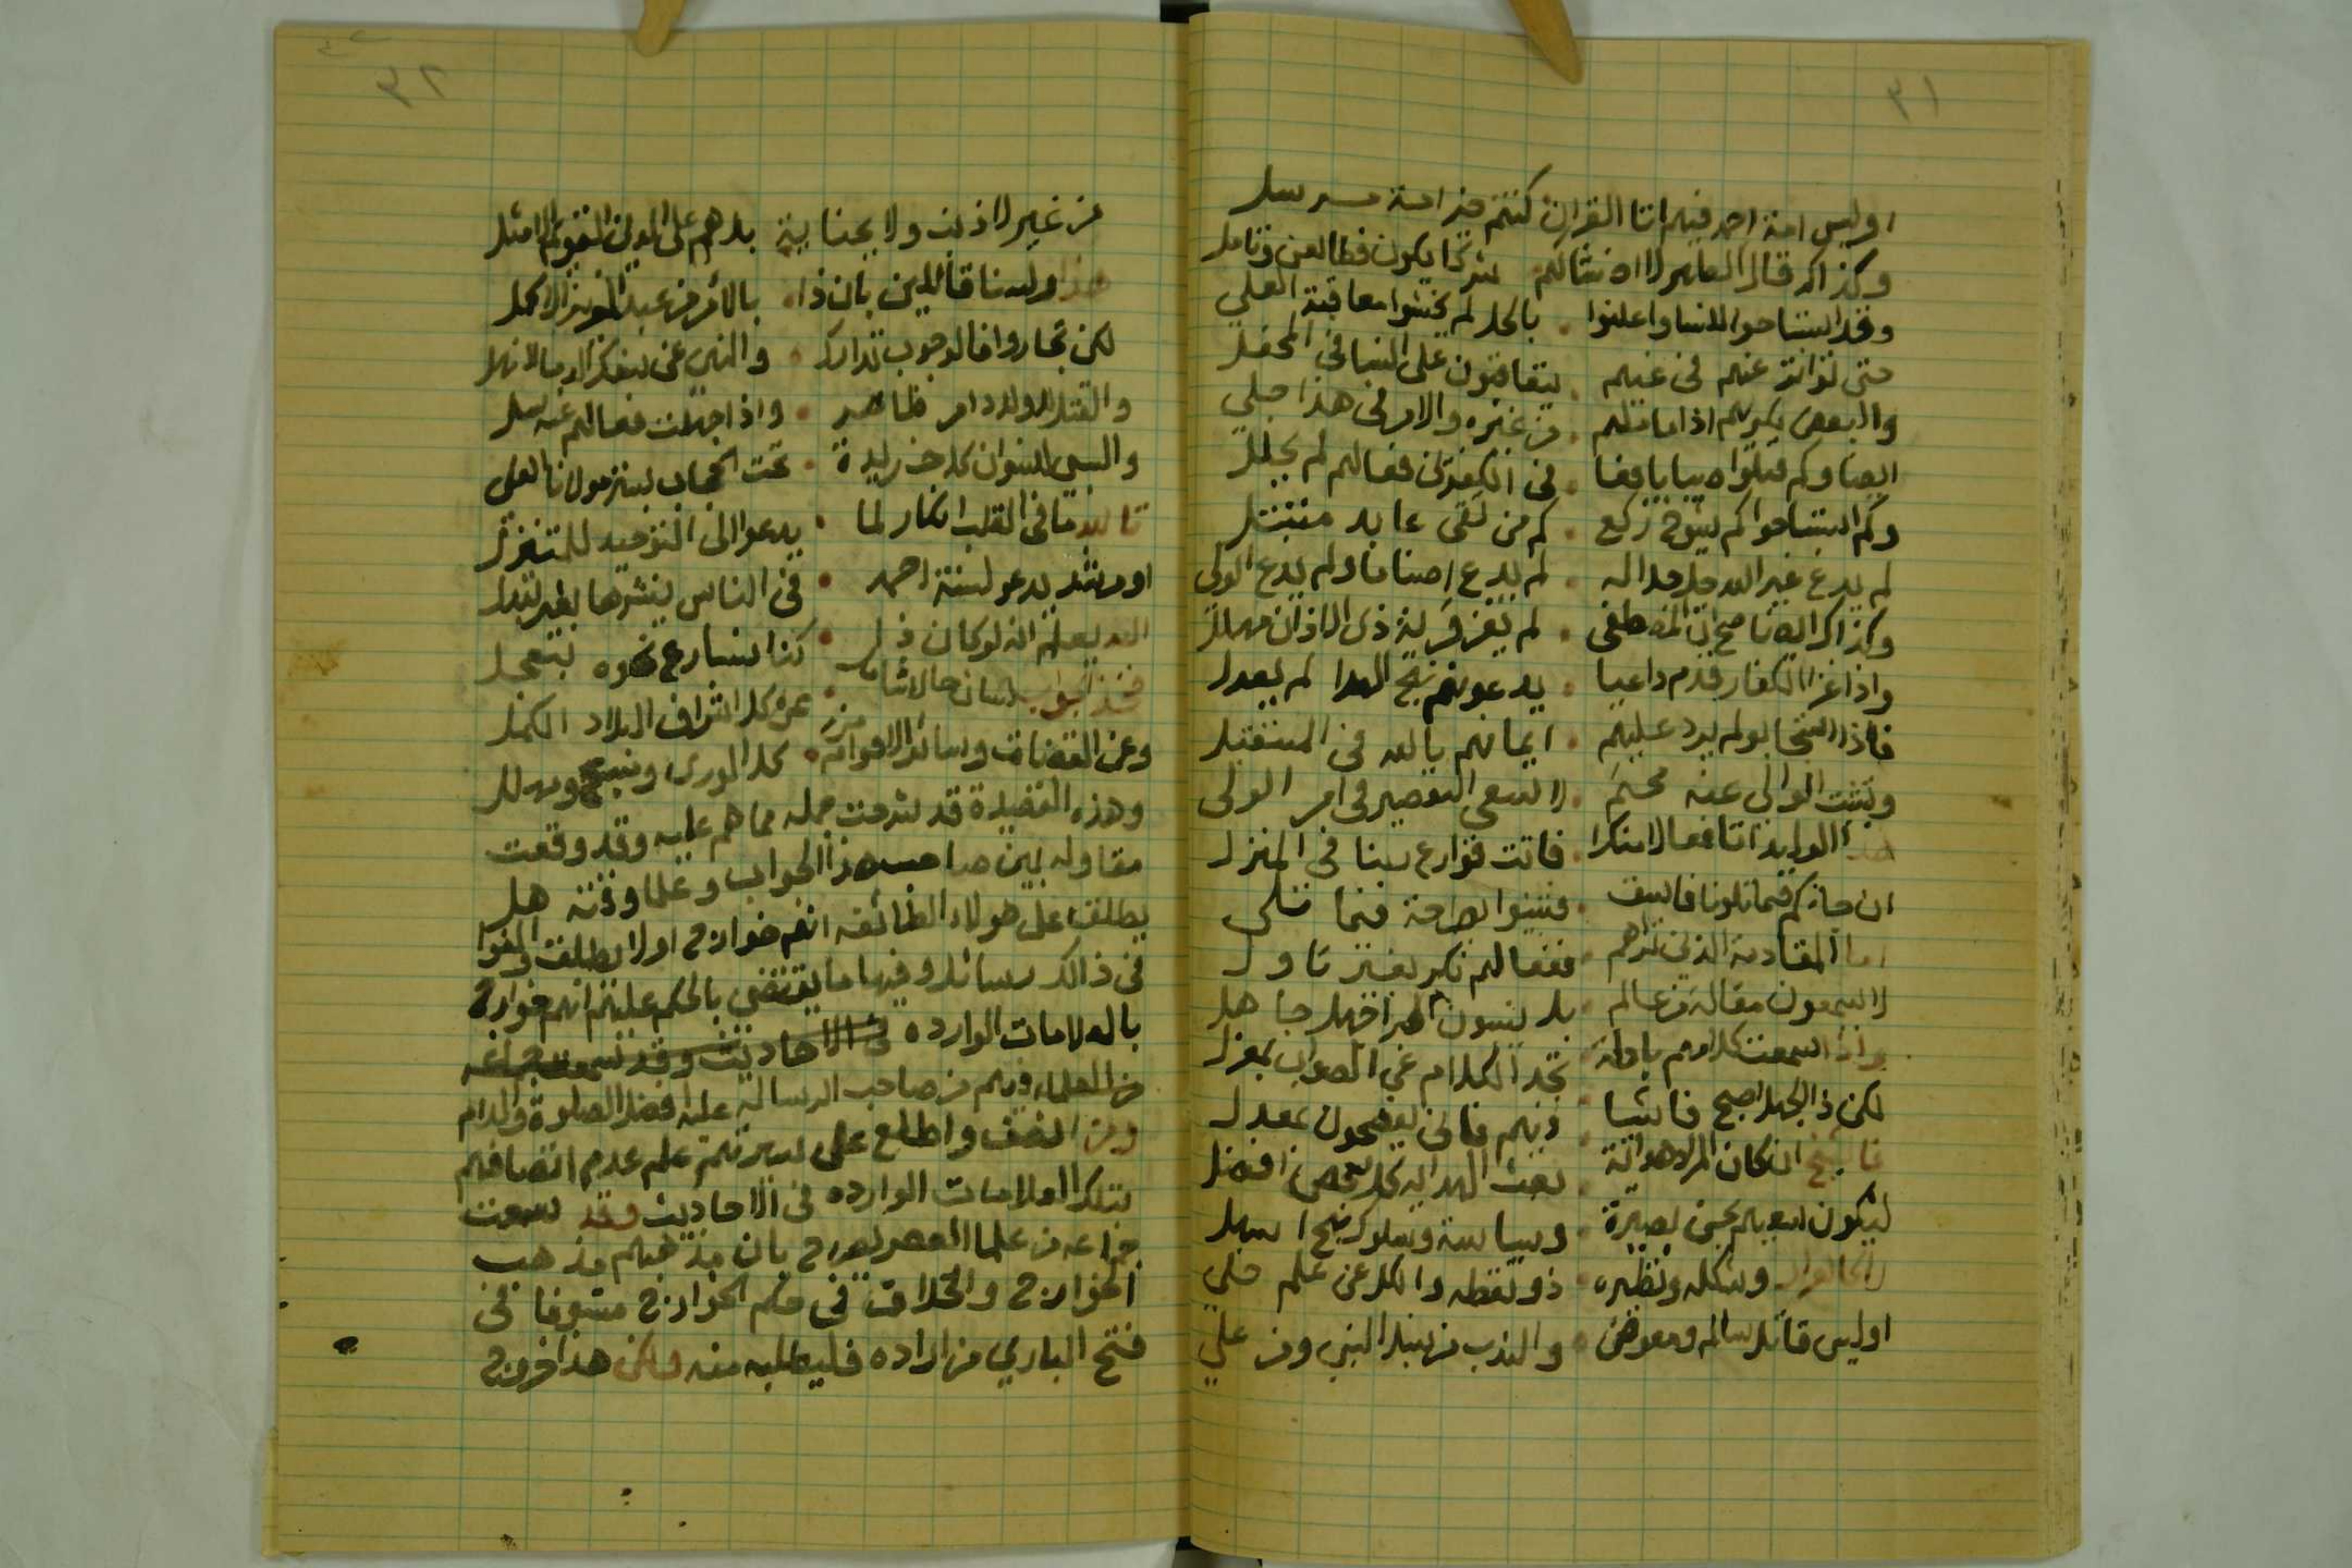 ٣١
اوليس امة احمد فيهم اتا القران كنتم خير امة مرسل
وكذاك قال الطاهر
وقد استباحوا للنسا واعلنوا • بالحل لم يخشوا معاقبة العلي
حتى تواتر عنهم في غيهم • يتقاضون على النسا في المحفل
والبعض يكريهم اذا ما ملهم • من غيره والامر في هذا جلي
ايضا وكم قتلوا صبيا يافعا • في الكفر في فعالهم لم يحلل
وكم استباحوا كم شيوخ ركع • كم من تقي عابد متبتل
لم يدع غير الله جل جلاله • لم يدع اصناما ولم يدع الولي
وكذاك ايضا صح ان المصطفى • لم يغز قرية ذي الاذان مهلل
واذا غزا الكفار قدم داعيا • يدعوهم نهج الهدا لم يعدل
فاذا استجابو لم يرد عليهم • ايمانهم بالله في المستقبل
وتثبت الوالي عنه محتم • لا ينبغي التقصير في امر الولي
هذا الوليد اتا فعالا منكرا • فاتت قوارع ربنا في المنزل
ان جائكم فيما تلونا فاسق • فتبينوا ايضاحة فيما تلي
اما المقادمة الذين نراهم • ففعالهم نكر بغير تاول
لا يسمعون مقالة من عالم • بل ينسبون الحبر اجهل جاهل
واذا سمعت كلامهم باطلة • تجد الكلام عن الصواب بمعزل
لكن ذا الجهل اصبح فاشيا • فيهم فانى يوضحون بمعدل
فا ان كان المراد هداية • بعث الهداية كل شخص افضل
ليكون اسوتهم بحسن بصيرة • وسياسة وسلوك نهج اسهل
وشكله ونظيره • ذو تقطه والكل عن علم جلي
اوليس قاتل سالم ومعوض • والندب من نسل النبي ومن علي
٣٢
من غير لا ذنب ولا بجناية بل هم على الدين القويم الامثل
هذا ولسنا قائلين بان ذا • بالامر من عبد العزيز الاكمل
لكن تجاروا فالوجوب تدارك • والنهي عن سفك الدما لا تهلا
والقتل للاولاد امر ظاهر • واذا جهلت فعالهم عنه سل
والسبي للنسوان كل خريدة • تحت الحجاب بستر مولانا العلي
تالله ما في القلب انكار لما • يدعو الى التوحيد للمتغزل
او مرشد يدعو لسنة احمد • في الناس ينشرها بغير تبدل
الله يعلم انه لوكان ذا • كنا نسارع نحوه بتعجل
فخذ الجواب لسان حال شامل • عن كل اشراف البلاد الكمل
وعن القضات وسائر الاقوام من • كل الورى ومسبح ومهلل
وهذه القصيدة قد شرحت جمله مما هم عليه وقد وقعت
مقاوله بين صاحب هذا الجواب وعلما وقته هل
يطلق على هولاء الطائفه انهم خوارج اولا يطلق والفوا
في ذالك رسائل وفيها ما يقتضي بالحكم عليهم انهم خوارج
بالعلامات الوارده في الاحاديث وقد سمعت جماعه
من العلماء وفيهم من صاحب الرساله عليه افضل الصلوة والسلام
ومن انصف واطلع على سيرتهم علم عدم اتصافهم
بتلك العلامات الوارده في الاحاديث وقد سمعت
جماعه من علما العصر يصرح بان مذهبهم مذهب
الخوارج والخلاف في حكم الخوارج مستوفا في
فتح الباري من اراده فليطلبه منه ولكن هذا خروج